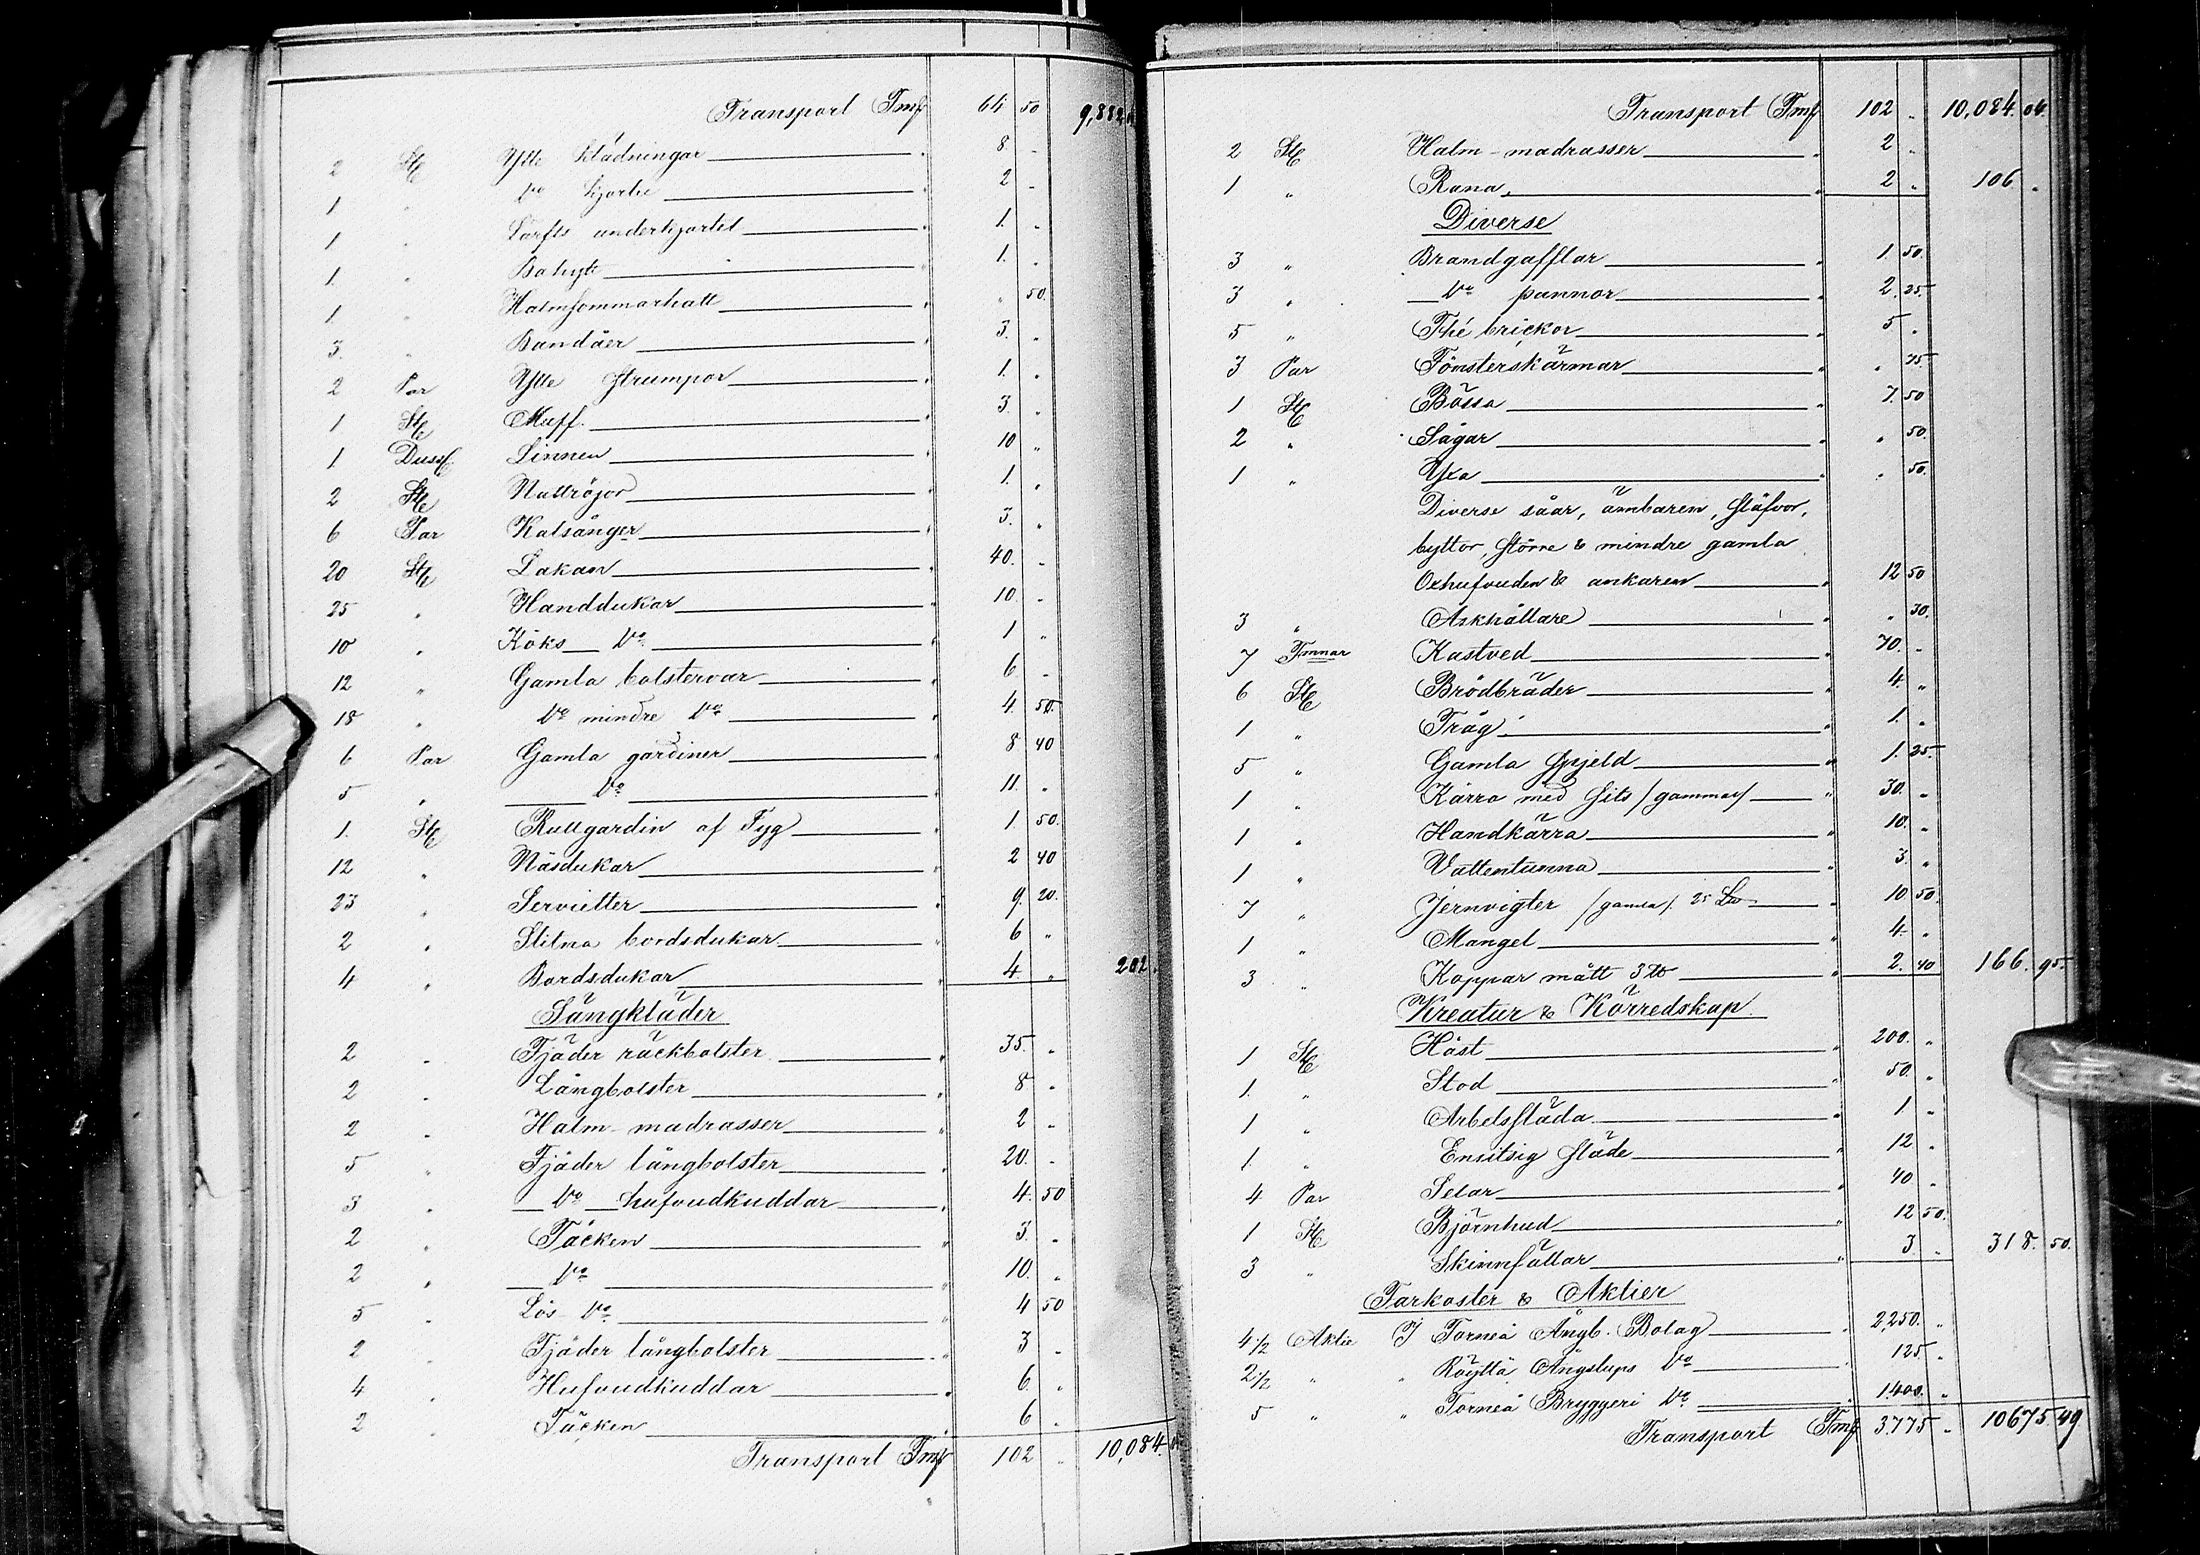 Transport Fmk 64 50 9,882
2 St Ylle klädningar " 8. "
1 " Do kjortel " 2 "
1 " Lärfts underkjortel " 1. "
1. " Bahytt " 1. "
1. " Halmsommarhatt " " 50.
3. " Bandåer " 3. "
2 Par Ylle strumpor " 1. "
1 St Muff. " 3. "
1. Duss Linnen " 10 "
2 St Nattröjor " 1. "
6 Par Kalsånger " 3. "
20 St Lakan " 40. "
25 " Handdukar " 10. "
10 " Köks Do " 1 "
12 " Gamla bolstervar " 6 "
18 " Do mindre Do " 4. 50.
6 Par Gamla gardiner " 8 40
5 " Do " 11. "
1. St Rullgardin af Tyg " 1. 50.
12 " Näsdukar " 2 40
23 " Servietter " 9. 20.
2 " Slitna bordsdukar " 6 "
4 " Bordsdukar " 4. " 202.
Sängkläder
2 " Fjäder räckbolster " 35. "
2 " Långbolster " 8 "
2 " Halm-madrasser " 2 "
5 " Fjäder långbolster " 20. "
3 " Do hufvudkuddar " 4. 50
2 " Täcken " 3. "
2 " Do " 10. "
5 " Lös Do " 4 50
2 " Fjäder långbolster " 3 "
4 " Hufvudkuddar " 6. "
2 " Täcken " 6 "
Transport Fmk 102 " 10,084.
Transport Fmk 102 " 10,084. 04.
2 St Halm-madrasser " 2 "
1 " Rana " 2 " 106 "
Diverse
3 " Brandgafflar " 1. 50.
3 " Do pannor " 2. 25.
5 " Thé brickor " 5 "
3 Par Fönsterskärmar " " 75.
1 St Bössa " 7. 50
2 " Sågar " " 50.
1 " Yxa " " 50.
Diverse såar, ämbaren, stäfvor,
byttor, större & mindre gamla
Oxhufvuden & ankaren " 12 50
3 " Askhållare " " 30.
7 Fmnar Kastved " 70. "
6 St Brödbräder " 4. "
1 " Tråg " 1. "
5 " Gamla spjeld " 1. 25.
1 " Kärra med sits /gammal/ " 30. "
1 " Handkärra " 10. "
1 " Vattentunna " 3. "
7 " Jernvigter /gamla/. 25 " 10 50.
1 " Mangel " 4. "
3 " Koppar mått 3 " 2. 40 166. 95.
Kreatur & Körredskap.
1 St Häst " 200. "
1. " Stod " 50. "
1 " Arbetsslåda " 1 "
1. " Ensitsig släde " 12 "
4 Par Selar " 40 "
1 St Björnhud " 12 50.
3 " Skinnfällar " 3 " 318. 50.
Farkoster & Aktier
4 1/2 Aktie I Torneå Ångb. Bolag " 2,250. "
2 1/2 " " Röyttä Ångslups Do " 125. "
5 " " Torneå Bryggeri Do " 1,400. "
Transport Fmk 3,775 " 10675 49